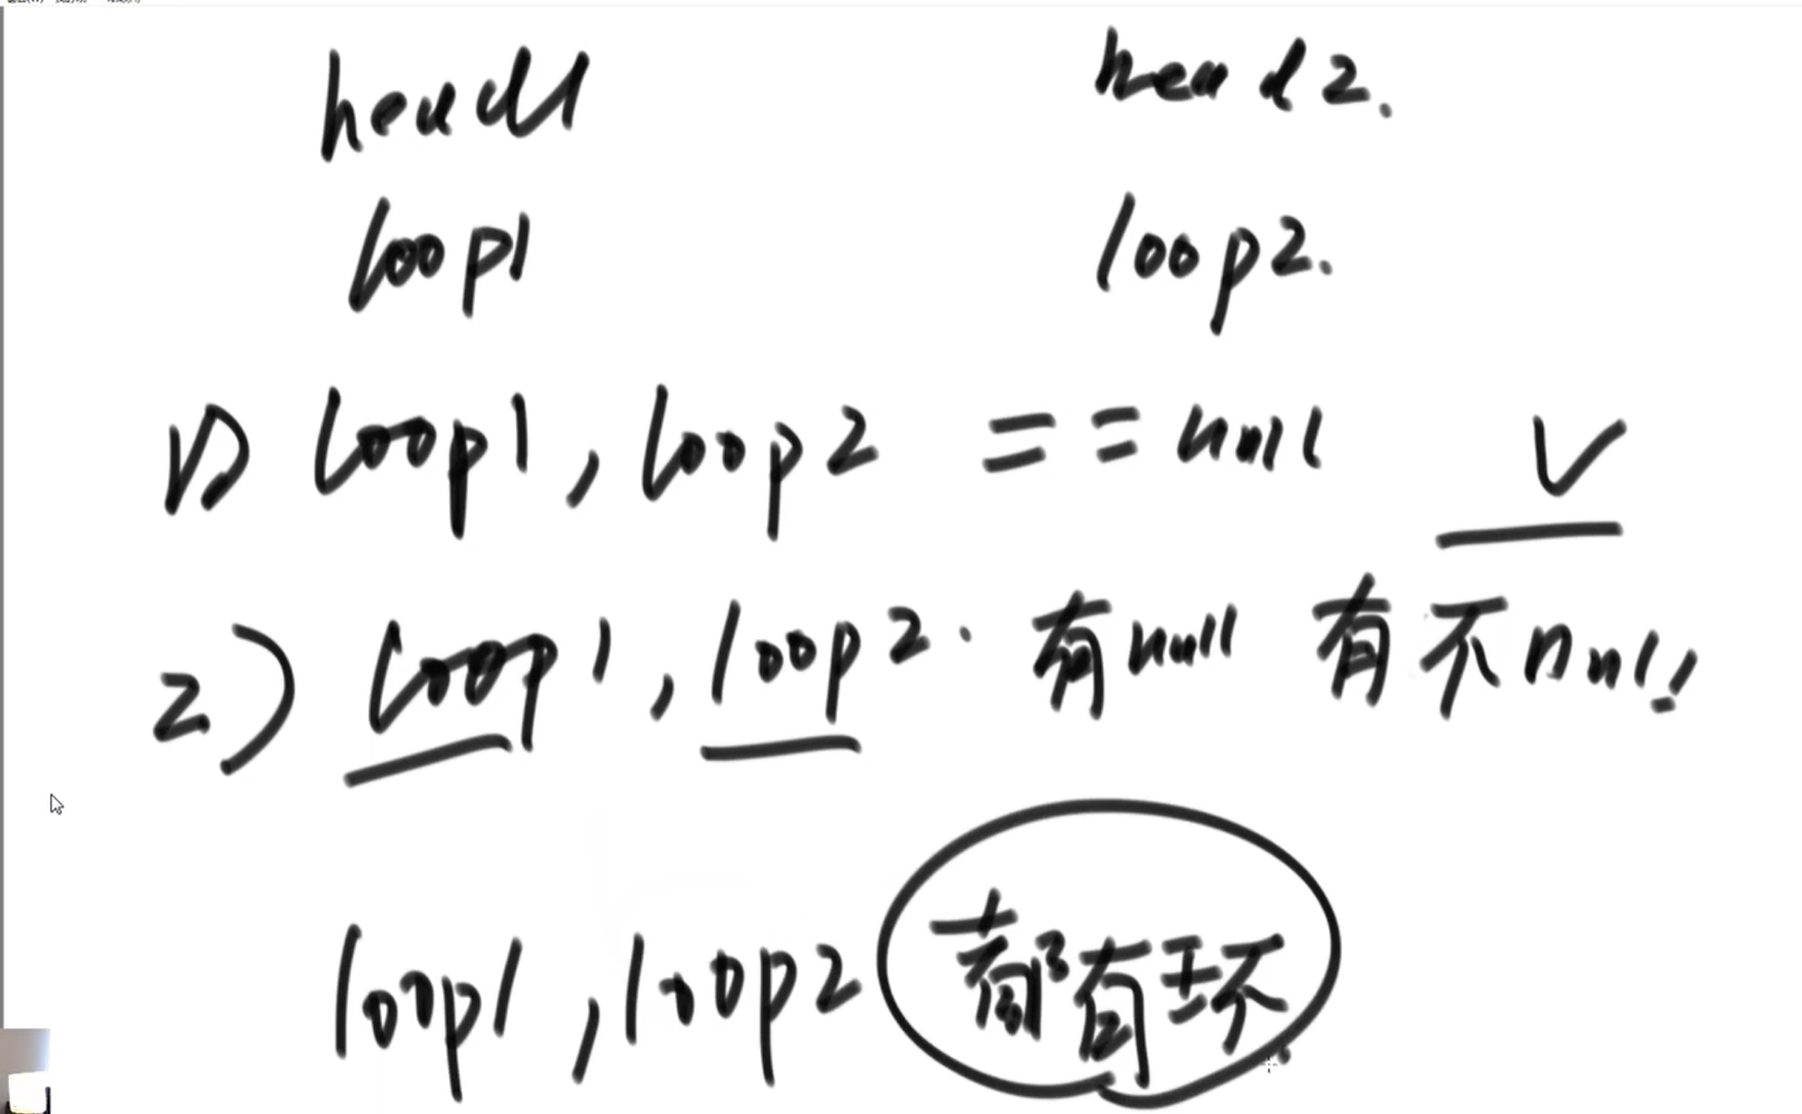 head1 head2.
loop1 loop2.
1) loop1, loop2 == null √
2) loop1, loop2. 有null 有不null!
loop1, loop2 都有环.